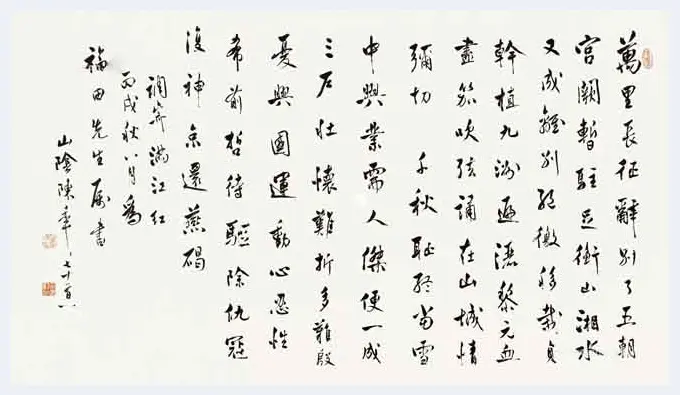 萬里長征辭別了五朝
宮闕暫駐足衡山湘水
又成離別絕徼移栽貞
幹植九洲遍灑黎元血
盡笳吹弦誦在山城情
彌切 千秋恥終當雪
中興業需人傑便一成
三戶壯懷難折多難殷
憂興國運動心忍性
希前哲待驅除仇寇
復神京還燕碣
調寄滿江紅
丙戌秋八月為
福田先生屬書
山陰陳年 七十